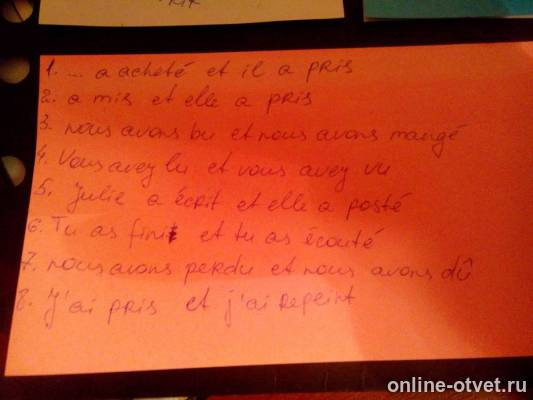 1. ... a acheté et il a pris
2. a mis et elle a pris
3. nous avons bu et nous avons mangé
4. Vous avez lu et vous avez vu
5. Julie a écrit et elle a posté
6. Tu as fini et tu as écouté
7. nous avons perdu et nous avons dû
8. J'ai pris et j'ai repeint
online-otvet.ru